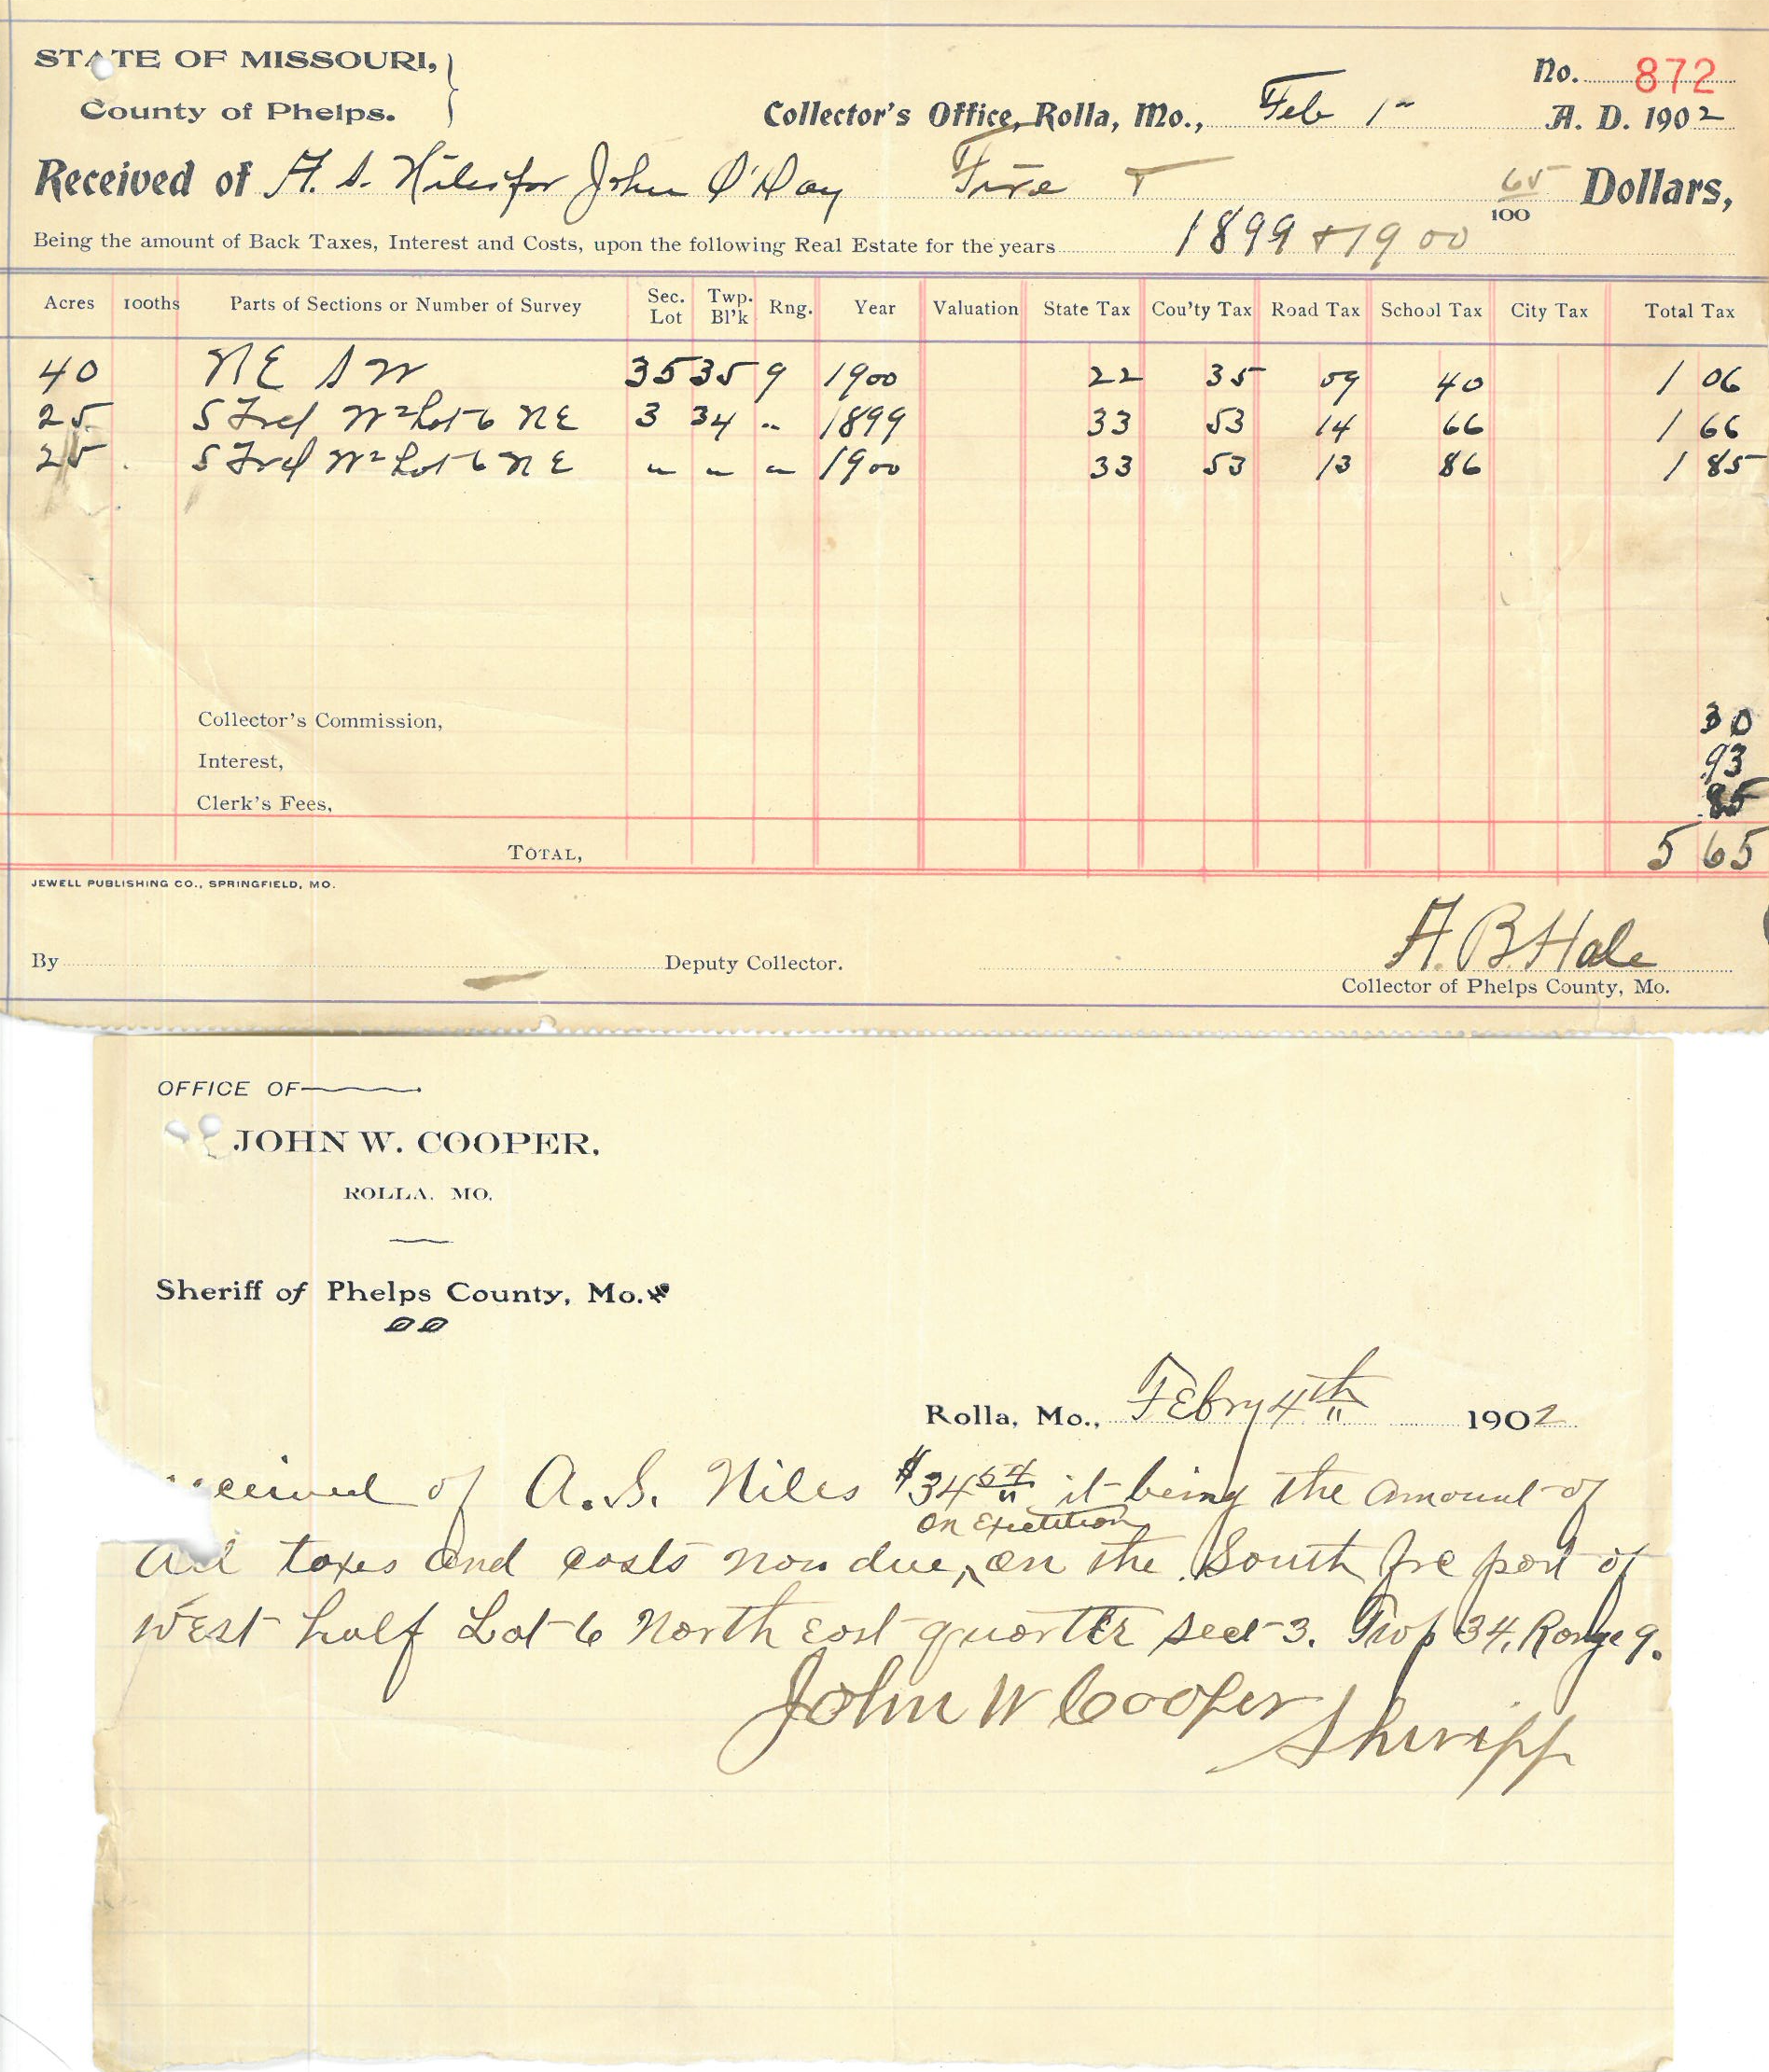 STATE OF MISSOURI,
County of Phelps.
No. 872
Collector's Office, Rolla, Mo., Feb 1" A. D. 1902
Received of A. S. Niles for John O'Day Five + 65/100 Dollars,
Being the amount of Back Taxes, Interest and Costs, upon the following Real Estate for the years 1899 + 1900
Acres 100ths Parts of Sections or Number of Survey Sec. Lot Twp. Bl'k Rng. Year Valuation State Tax Cou'ty Tax Road Tax School Tax City Tax Total Tax
40 NE SW 35 35 9 1900 22 35 09 40 1 06
25 S Frcl W2 Lot 6 NE 3 34 " 1899 33 53 14 66 1 66
25 S Frcl W2 Lot 6 NE " " " 1900 33 53 13 86 1 85
Collector's Commission, 30
Interest, 93
Clerk's Fees,
TOTAL, 5 65
JEWELL PUBLISHING CO., SPRINGFIELD, MO.
By Deputy Collector.
A. B. Hale
Collector of Phelps County, Mo.
OFFICE OF
JOHN W. COOPER,
ROLLA, MO.
Sheriff of Phelps County, Mo.
Rolla, Mo., Febry 4th 1902
eceived of A. S. Niles $34 64 it being the amount of
on Exetition
all taxes and costs now due, on the South frc part of
West half Lot 6 North east quarter sect 3. Twp 34, Range 9.
John W Cooper
Sheriff